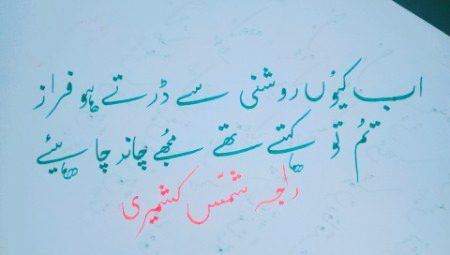 اب کیوں روشنی سے ڈرتے ہو فراز
تم تو کہتے تھے مجھے چاند چاہیئے
راجہ شمس کشمیری